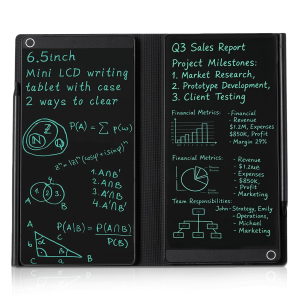 6.5inch
Mini LCD writing
tablet with case
2 ways to clear
N Z
P(A) = ∑ p(ω)
zⁿ = |z|ⁿ (cosφ + i sinφ)ⁿ
1 2 3
1. A∩B
2. A∩B'
3. A'∩B
4. A'∩B'
A
b
c
α
β
C
a
B
P(A|B) = P(A∩B)
P(B)
Q3 Sales Report
Project Milestones:
1. Market Research,
2. Prototype Development,
3. Client Testing
Financial Metrics:
- Financial
- Revenue
$1.2M, Expenses
$850K, Profit
- Margin 29%
Financial Metrics:
- Revenue
- $1.2M
- Expenses
- $850K,
- Profit
- Marketing
Team Responsibilities:
John-Strategy, Emily
- Operations,
- Michael
- Marketing